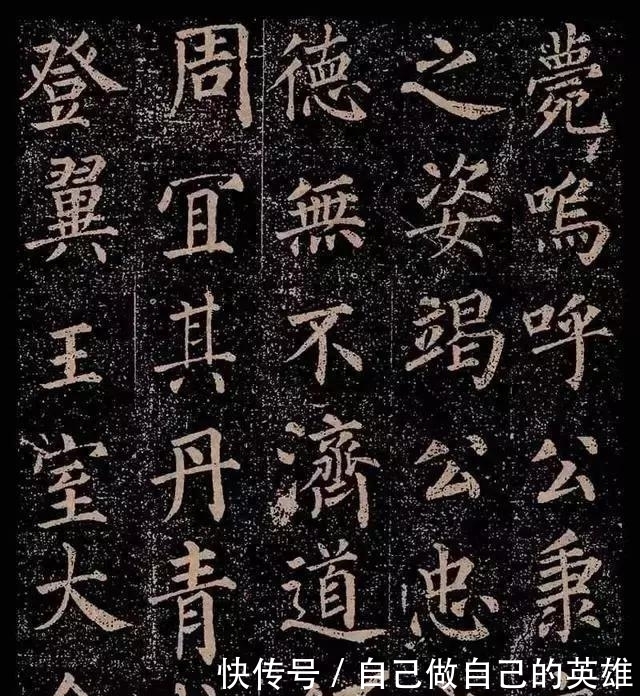 薨嗚呼公秉
之姿竭公忠
德無不濟道
周冝其丹青
登翼王室大
快传号 / 自己做自己的英雄